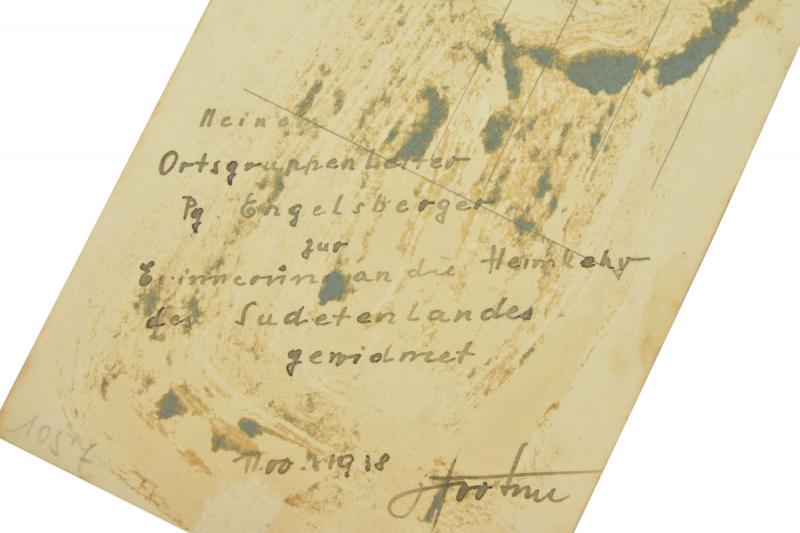 Meinem
Ortsgruppenleiter
Pg Engelsberger
zur
Erinnerung an die Heimkehr
des Sudetenlandes
gewidmet
Nov. 1938
1057